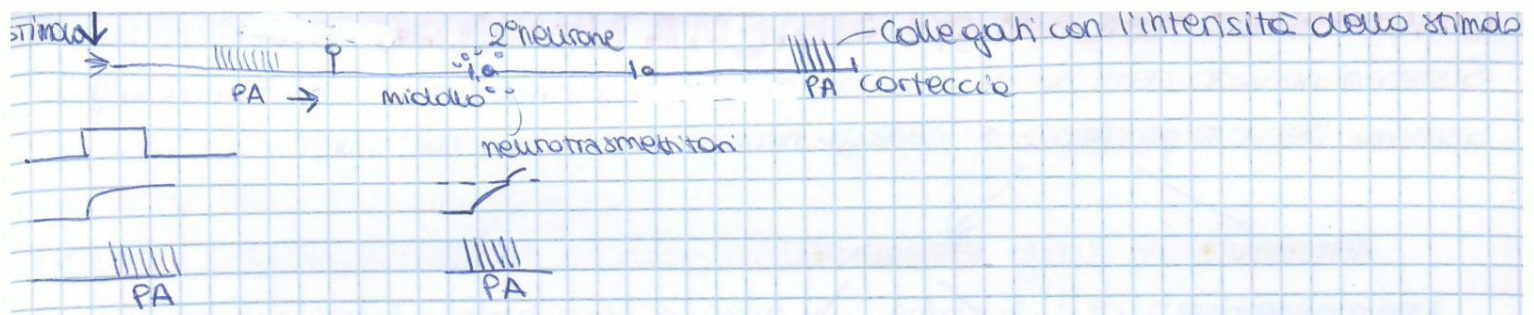 stimolo
2° neurone
collegati con l'intensità dello stimolo
PA → midollo
PA corteccia
neurotrasmettitori
PA
PA